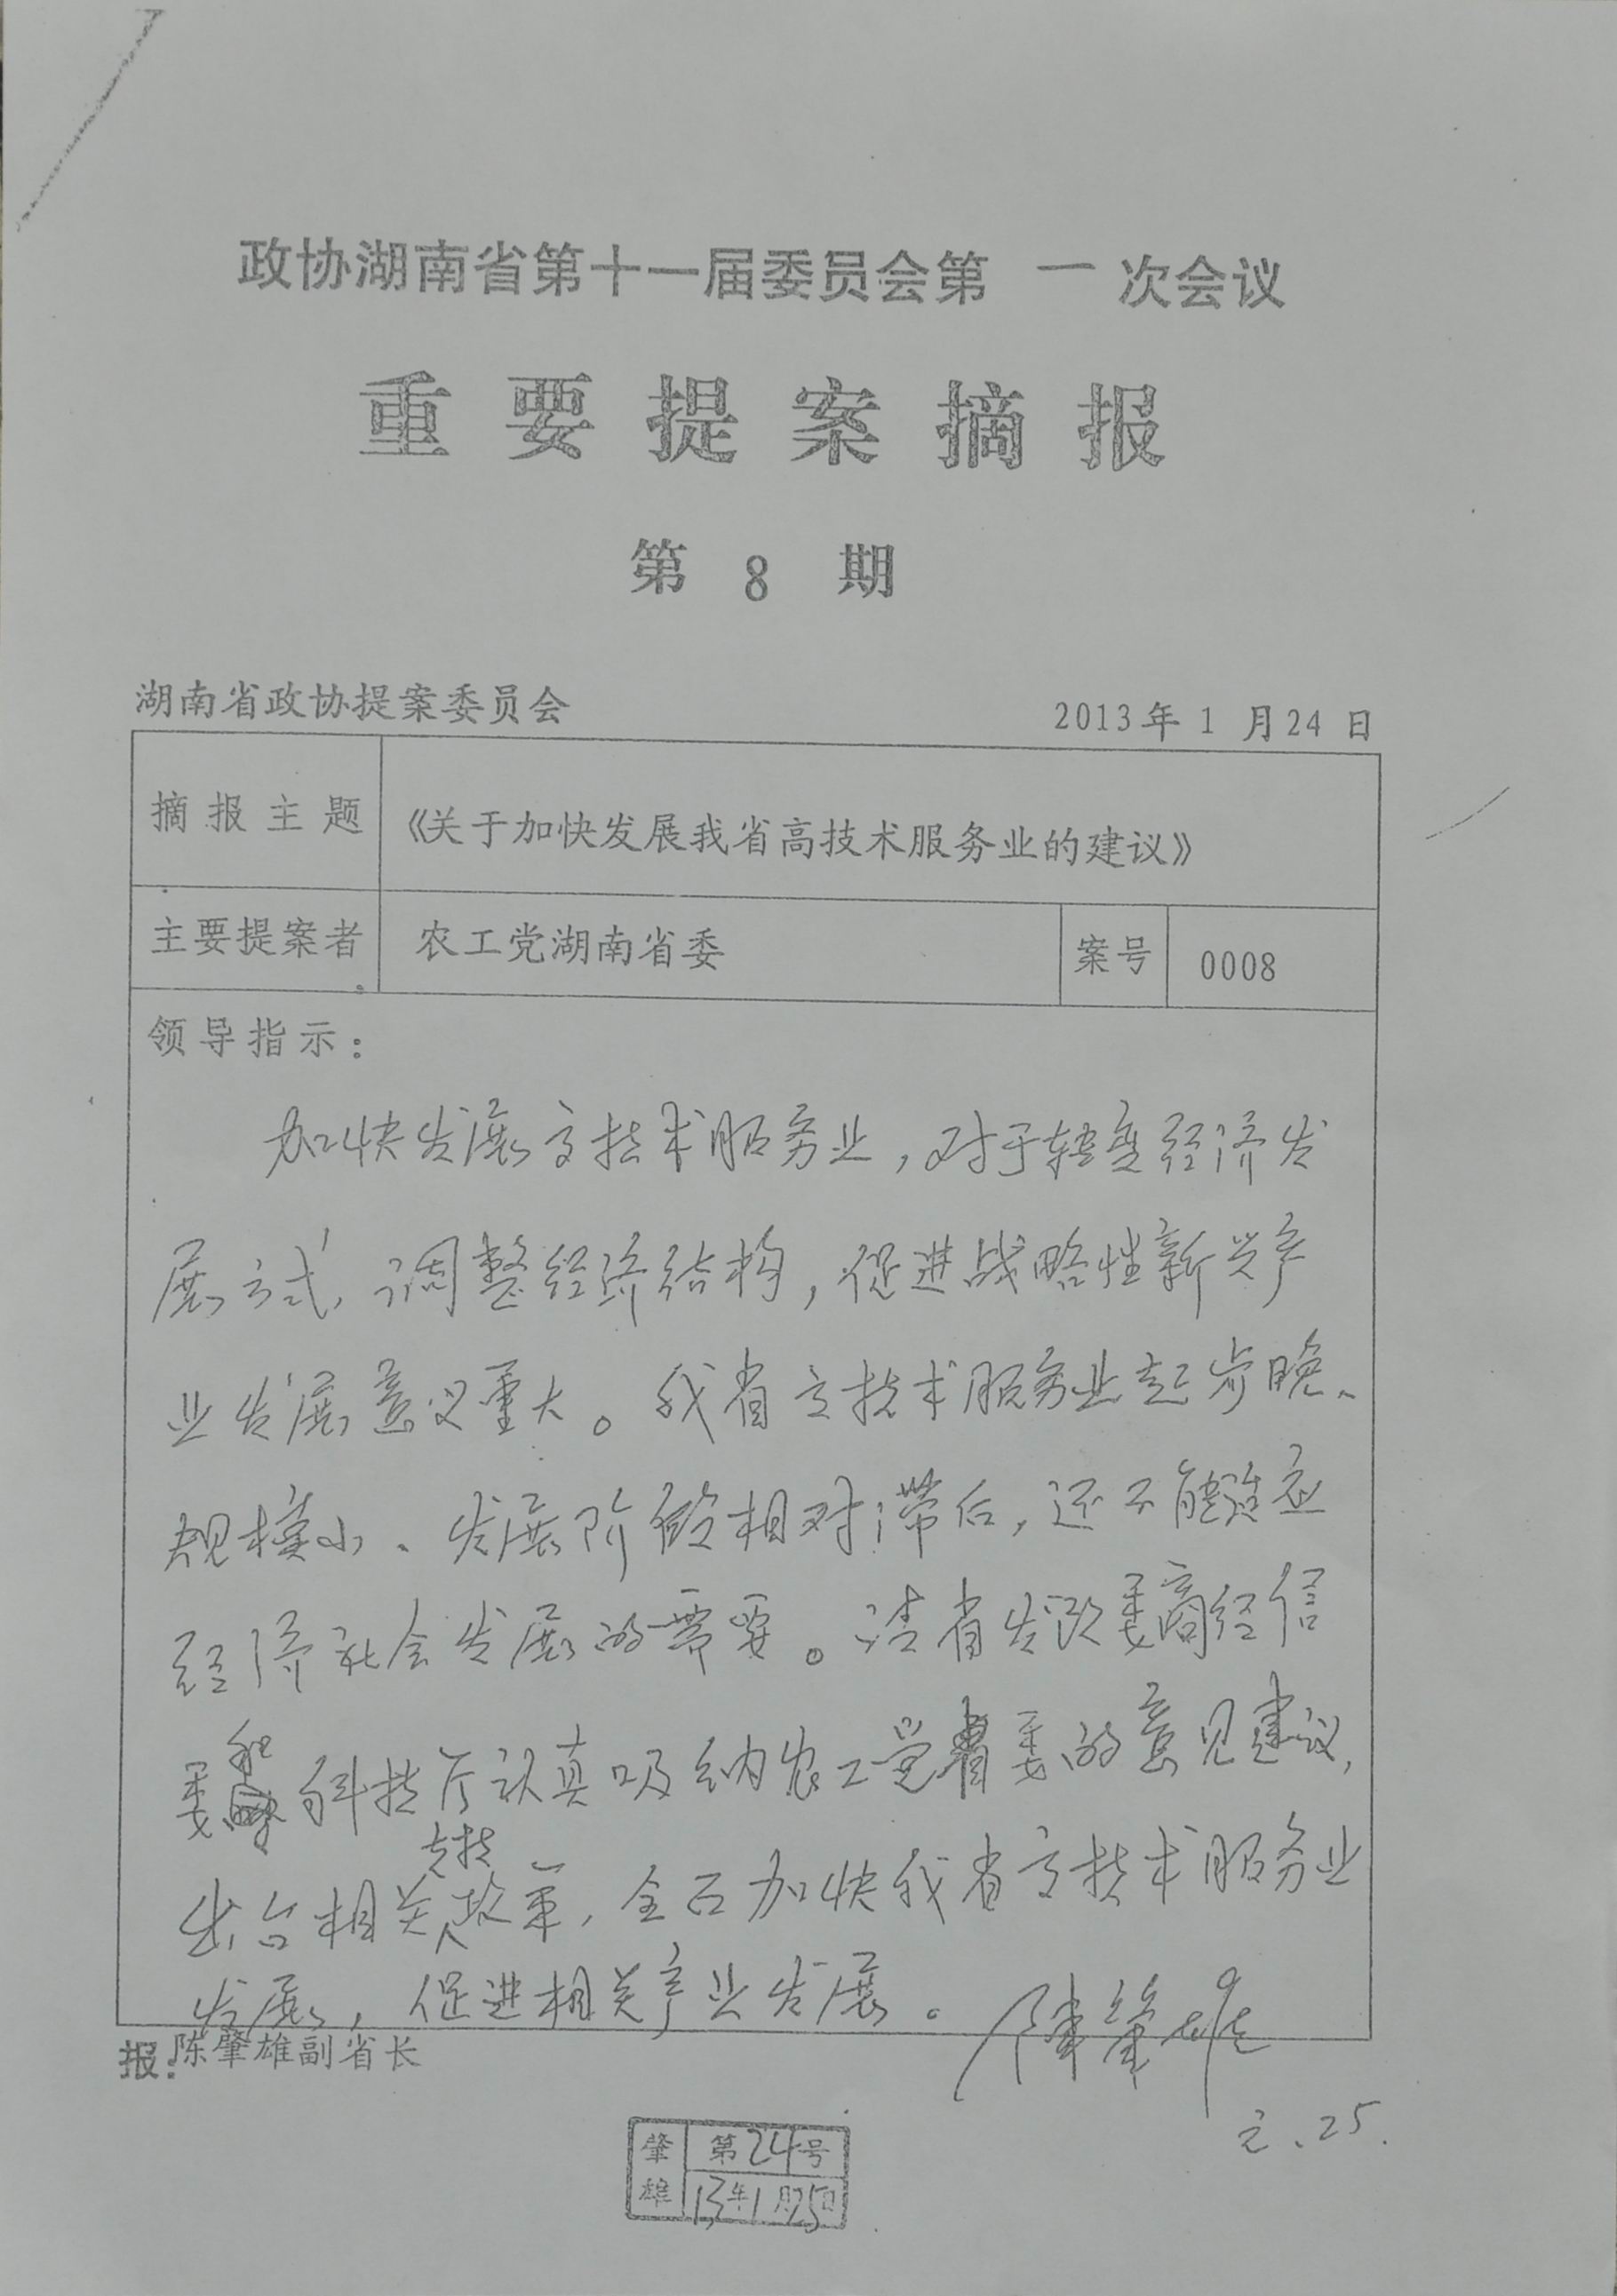 政协湖南省第十一届委员会第 一 次会议
重要提案摘报
第 8 期
湖南省政协提案委员会 2013年 1 月24 日
摘报主题 《关于加快发展我省高技术服务业的建议》
主要提案者 农工党湖南省委 案号 0008
领导指示：
加快发展高技术服务业，对于转变经济发
展方式，调整经济结构，促进战略性新兴产
业发展意义重大。我省高技术服务业起步晚、
规模小、发展阶段相对滞后，还不能适应
经济社会发展的需要。请省发改委商经信
委和科技厅认真吸纳农工党省委的意见建议，
出台相关支持政策，全面加快我省高技术服务业
发展，促进相关产业发展。 陈肇雄
元.25.
报：陈肇雄副省长
肇雄 第24号
13年1月25日